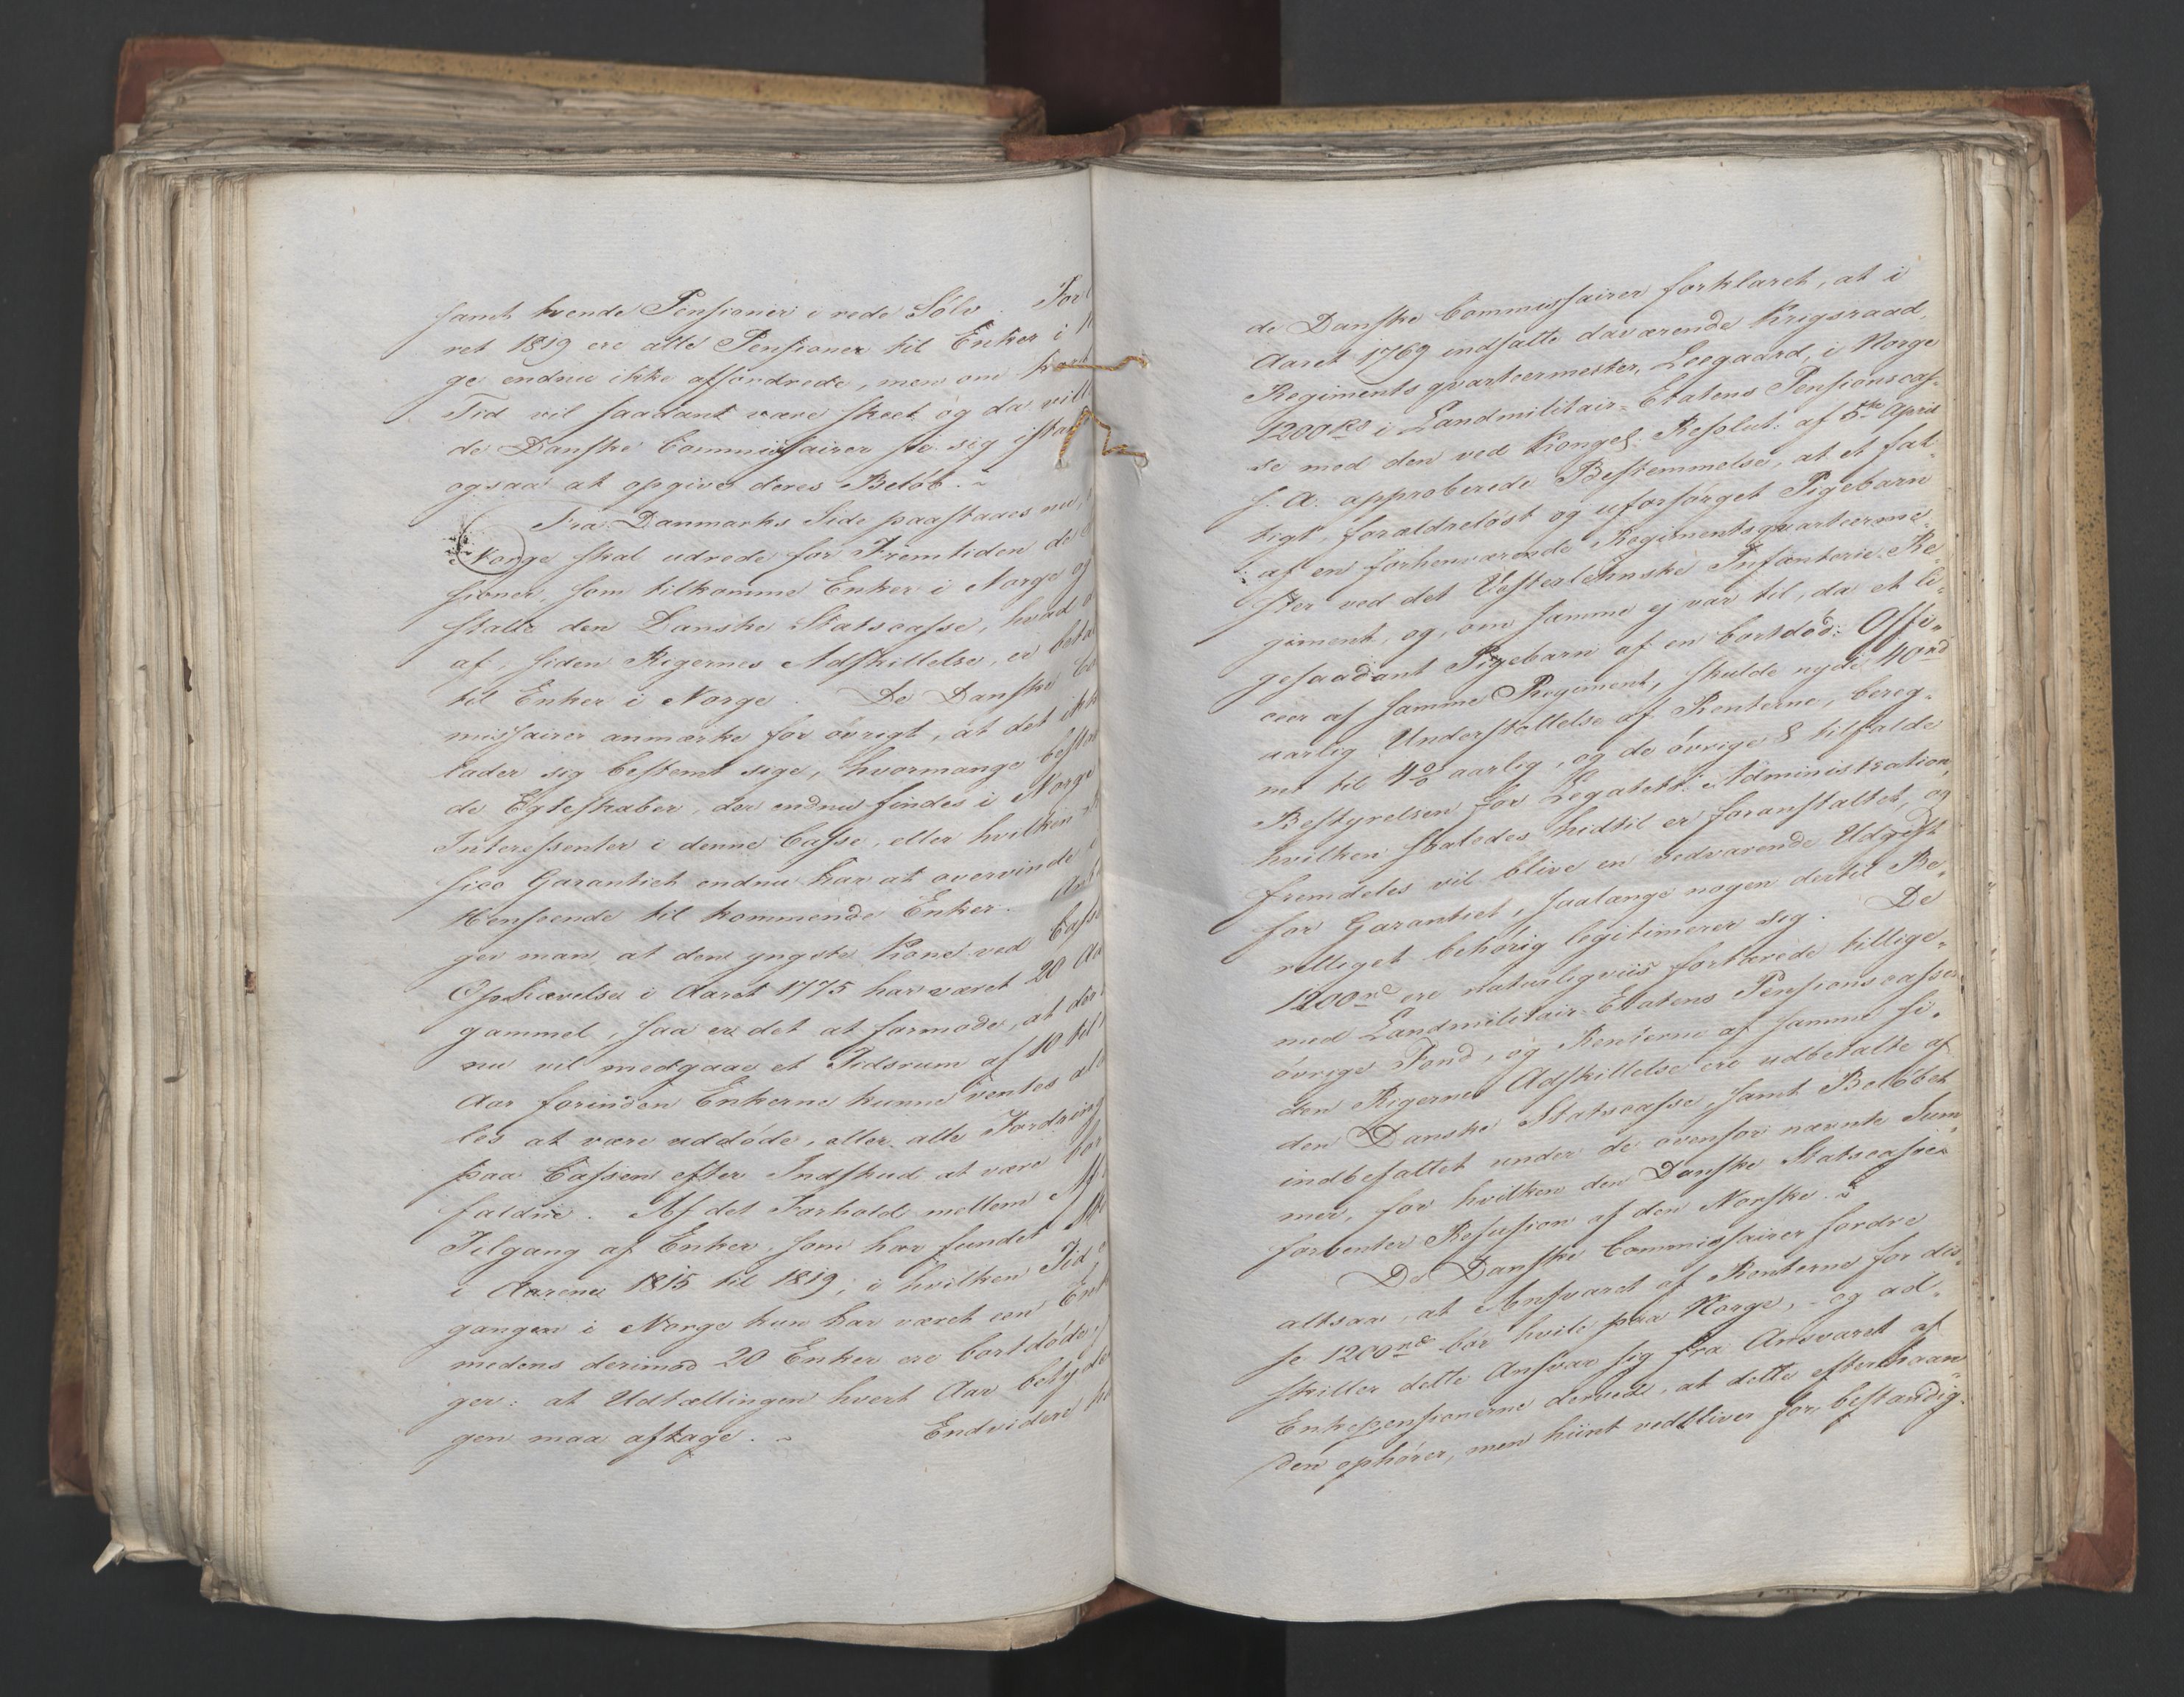 samt hvende Pensioner i rede Sölv. For
ret 1819 ere alle Pensioner til Enker i N
ge endnu ikke affondrede, men om kort
Tid vil saadant være skeet og da vill
de Danske Commissairer see sig istan
ogsaa at opgive deres Beløb. ~
Fra Danmarks Side paastaaes nu,
Norge skal udrede for Fremtiden de
sioner, som tilkomme Enker i Norge og
statte den Danske Statscasse, hvad
af, siden Rigernes Adskillelse, er beta
til Enker i Norge. De Danske Co
missairer anmærke for övrigt, at det ikk
lader sig bestemt sige, hvormange bestaa
de Egteskaber, der endnu findes i Norge
Interessenter i denne Casse, eller hvilken
sico Garantiet endnu har at overvinde
Henseende til kommende Enker.
ger man, at den yngste Kone ved Casse
Ophævelse i Aaret 1775 har været 20 Aa
gammel, saa er det at formode, at der
nu vil medgaae et Tidsrum af 10 til
Aar forinden Enkerne kunne ventes al
les at være uddöde, eller alle Fordring
paa Cassen efter Indskud at være bort
faldne. Af det Forhold mellem Af
Tilgang af Enker, som har fundet St
i Aarene 1815 til 1819, i hvilken Tid
gangen i Norge kun har været een Enk
medens derimod 20 Enker ere bortdöde,
ger: at Udtællingen hvert Aar betyde
gen maa aftage. ~ Endvidere
de Danske Commissairer forklaret, at i
Aaret 1769 indsatte daværende Krigsraad,
Regimentsqvarteermester, Leegaard, i Norge
1200 rd i Landmilitair-Etatens Pensionscas-
se mod den ved Kongel. Resolut: af 5te April
s. A. approberede Bestemmelse, at et fat-
tigt, forældrelöst og uforsörget Pigebarn
af en forhenværende Regimentsqvarteerme-
ster ved det Vesterlehnske Infanterie-Re-
giment, og, om samme ej var til, da et li-
gesaadant Pigebarn af en bortdöd Offi-
ceer af samme Regiment, skulde nyde 40 rd
aarlig Understöttelse af Renterne, bereg-
net til 4 % aarlig, og de övrige 8 tilfalde
Bestyrelsen for Legatets Administration,
hvilken saaledes hidtil er foranstaltet, og
fremdeles vil blive en vedvarende Udgift
for Garantiet, saalænge nogen dertil Be-
retliget behörig legitimerer sig. De
1200 rd ere naturligviis fortærede tillige-
med Landmilitair-Etatens Pensionscasses
övrige Fond, og Renterne af samme si-
den Rigernes Adskillelse ere udbetalte af
den Danske Statscasse, samt Belöbet
indbefattet under de ovenfor nævnte Sum-
mer, for hvilken den Danske Statscasse
forventer Refusion af den Norske. ~
De Danske Commissairer fordre
altsaa, at Ansvaret af Renterne for dis-
se 1200 rd bör hvile paa Norge, - og ad-
skiller dette Ansvar sig fra Ansvaret af
Enkepensionerne derved, at dette efterhaan-
den ophörer, men hiint vedbliver for bestandig.